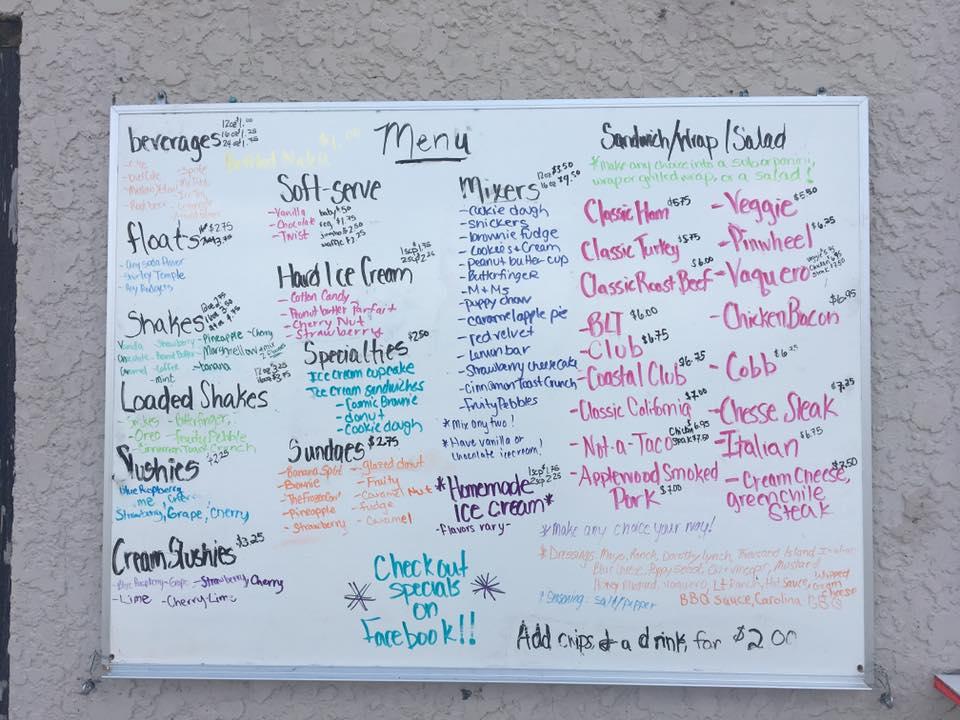 Menu
beverages
12oz $1.00
16oz $1.25
24oz $1.75
- Sprite
- Rootbeer
floats
$2.75
- Any soda flavor
- Shirley Temple
Shakes
Vanilla - Strawberry - Pineapple - Cherry
Chocolate - Peanut Butter - Marshmellow
Caramel - Coffee - banana
- mint
Loaded Shakes
12oz 3.25
16oz $3.75
- Snikers - Butterfinger
- Oreo - Fruity Pebble
- Cinnamon Toast Crunch
Slushies
$2.25
Blue Raspberry
Lime
Strawberry, Grape, Cherry
Cream Slushies $3.25
- Blue Raspberry - Grape - Strawberry, Cherry
- Lime - Cherry-Lime
Soft-serve
- Vanilla
- Chocolate
- Twist
baby $.50
reg $1.75
jumbo $2.50
waffle $3.25
Hard Ice Cream
1scp 1.75
2scp 2.25
- Cotton Candy
- Peanut butter Parfart
- Cherry Nut
- Strawberry
Specialties $2.50
Ice cream cupcake
Ice cream sandwiches
- Cosmic Brownie
- donut
- Cookie dough
Sundaes $2.75
- Banana Split - glazed donut
- Brownie - Fruity
- The Frozen Cow - Caramel Nut
- Pineapple - fudge
- Strawberry - Caramel
Check out
specials
on
Facebook!!
Mixers
12oz $3.50
16oz $4.50
- cookie dough
- snickers
- brownie fudge
- Cookies + Cream
- Peanut butter cup
- Butterfinger
- M+Ms
- puppy chow
- caramel apple pie
- red velvet
- Lemon bar
- Strawberry cheesecake
- Cinnamon Toast Crunch
- Fruity Pebbles
* Mix any two!
* Have vanilla or
chocolate icecream!
1scp $1.75
2scp 2.25
*Homemade
ICE cream*
- flavors vary -
Sandwich/Wrap/Salad
*Make any choice into a sub or panini,
wrap or grilled wrap, or a salad!
Classic Ham $5.75
Classic Turkey $5.75
Classic Roast Beef $6.00
- BLT $6.00
- Club $6.75
- Coastal Club $6.75
- Classic California $7.00
- Not-a-Taco Chicken 6.95
Steak $7.50
- Applewood Smoked
Pork $7.00
- Veggie $5.50
- Pinwheel $6.25
- Vaquero
- Chicken Bacon $6.95
- Cobb
- Chesse Steak $7.25
- Italian $6.75
- Cream Cheese, $7.50
green chile
steak
*Make any choice your way!
*Dressings: Mayo, Ranch, Dorothy Lynch, Thousand Island, Italian
Blue Cheese, Poppyseed, Oil + vinegar, Mustard
Honey Mustard, Vaquero, Lt Ranch, Hot Sauce, whipped cream cheese
BBQ Sauce, Carolina BBQ
*Seasoning: salt/pepper
Add chips + a drink, for $2.00